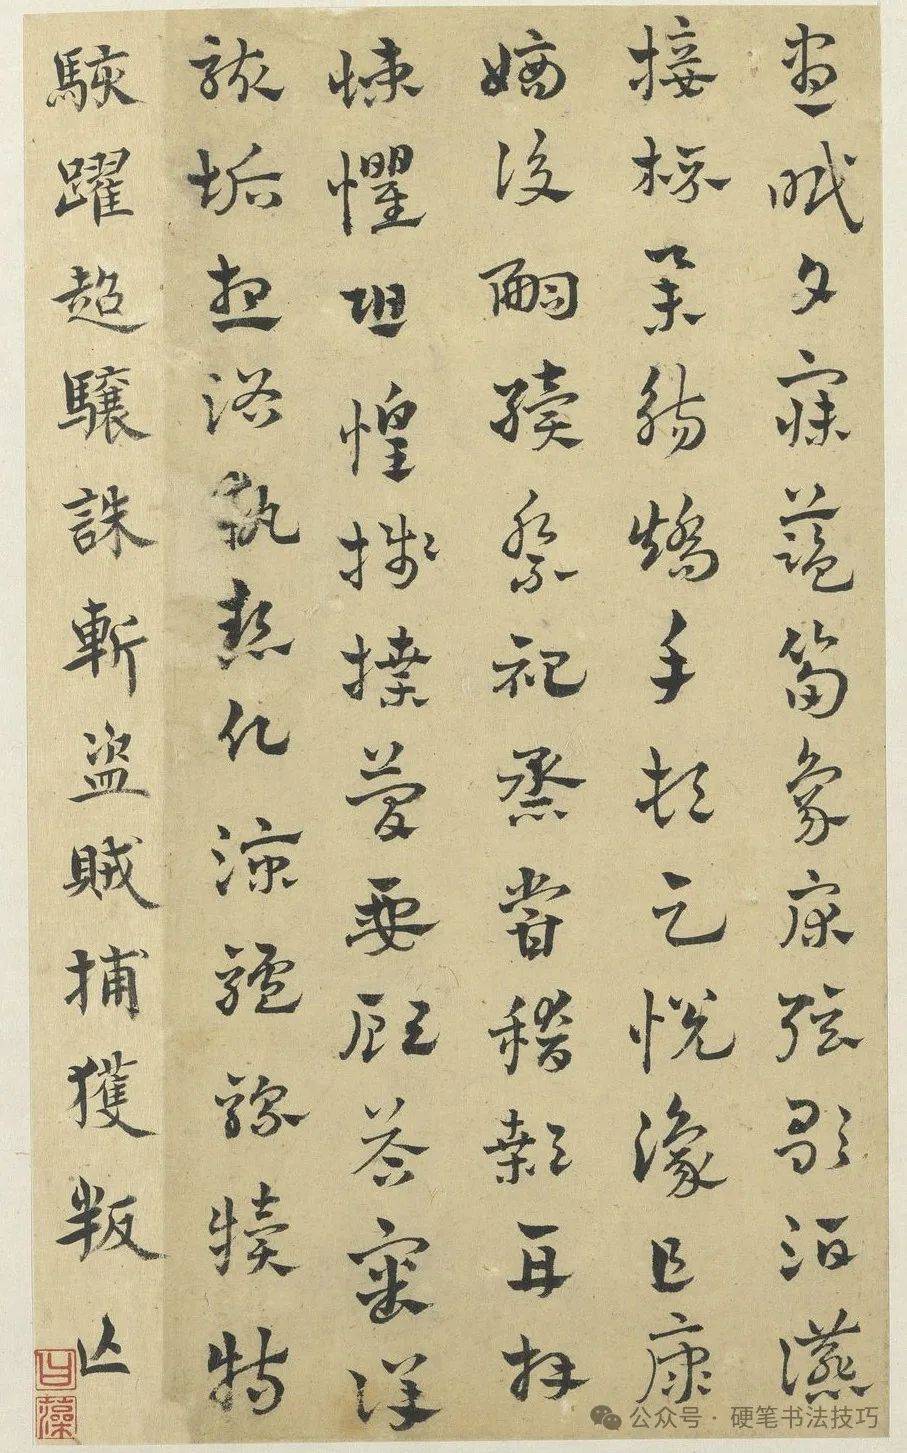 晝眠夕寐藍筍象床弦歌酒讌
接杯舉觴矯手頓足悅豫且康
嫡後嗣續祭祀蒸嘗稽顙再拜
悚懼恐惶牋牒簡要顧答審詳
骸垢想浴執熱願涼驢騾犢特
駭躍超驤誅斬盜賊捕獲叛亡
公众号 · 硬笔书法技巧